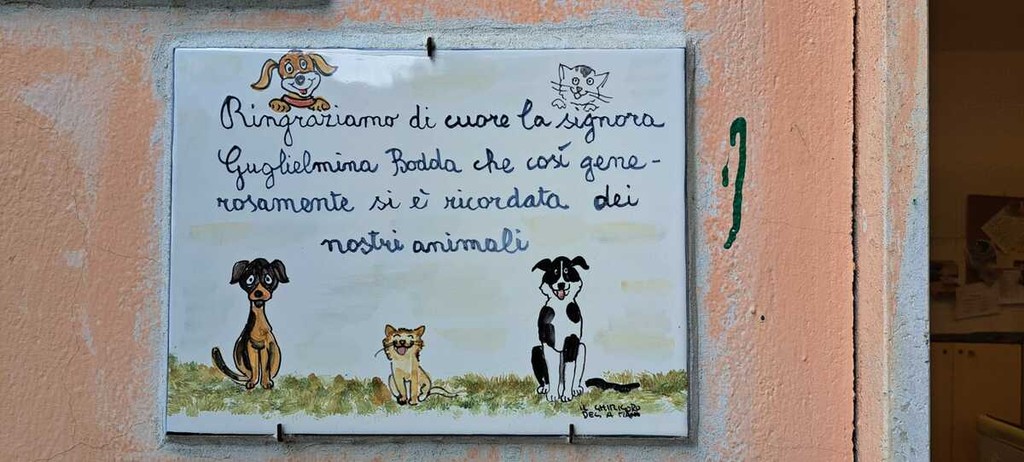 Ringraziamo di cuore la signora
Guglielmina Bodda che così gene-
rosamente si è ricordata dei
nostri animali
IL GHIRIGORO